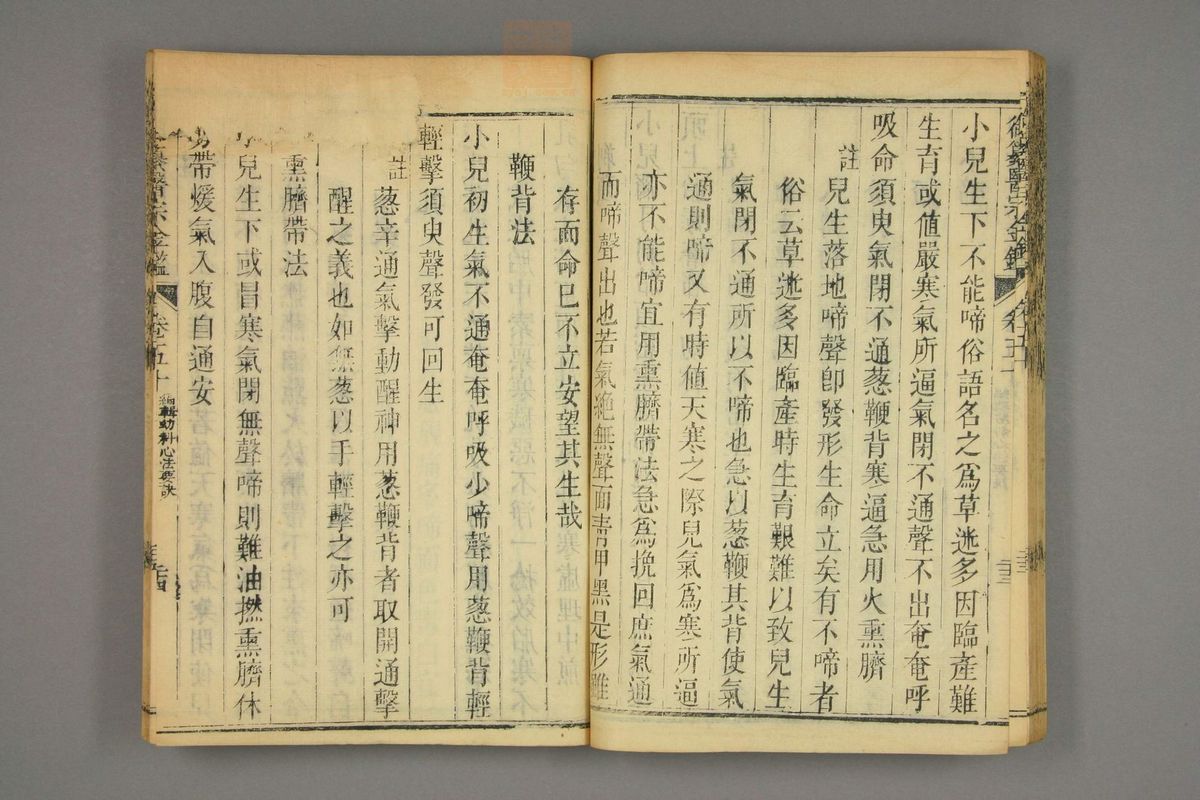 御纂醫宗金鑑
小兒生下不能啼俗語名之爲草迷多因臨產難
生育或値嚴寒氣所逼氣閉不通聲不出奄奄呼
吸命須臾氣閉不通葱鞭背寒逼急用火熏臍
註
兒生落地啼聲卽發形生命立矣有不啼者
俗云草迷多因臨產時生育艱難以致兒生
氣閉不通所以不啼也急以葱鞭其背使氣
通則啼又有時値天寒之際兒氣爲寒所逼
亦不能啼宜用熏臍帶法急爲挽回庶氣通
而啼聲出也若氣絶無聲面靑甲黑是形雖
存而命已不立安望其生哉
鞭背法
小兒初生氣不通奄奄呼吸少啼聲用葱鞭背輕
輕擊須臾聲發可回生
註
葱辛通氣擊動醒神用葱鞭背者取開通擊
醒之義也如無葱以手輕擊之亦可
熏臍帶法
兒生下或冒寒氣閉無聲啼則難油撚熏臍休
帶煖氣入腹自通安
醫宗金鑑
卷五十
編輯幼科心法要訣